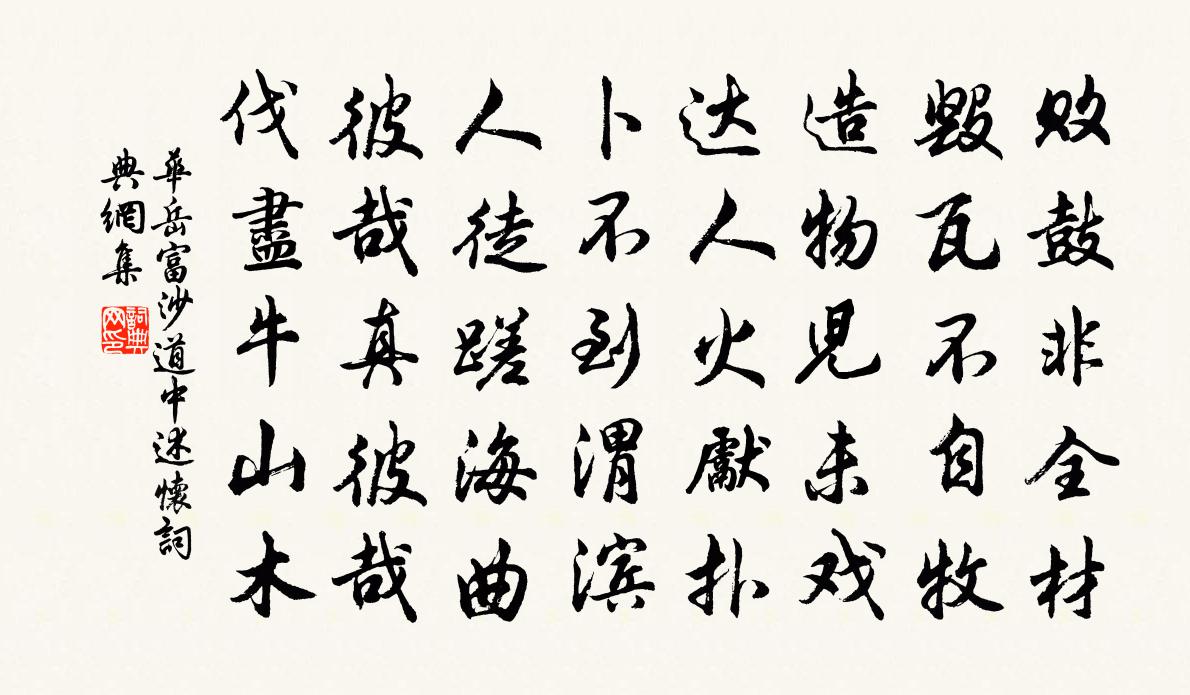 败鼓非全材
毁瓦不自牧
造物児未戏
达人火獻扑
卜不到渭滨
人徒蹉海曲
彼哉真彼哉
伐盡牛山木
華岳富沙道中述懷詞
典網集
詞典
网印